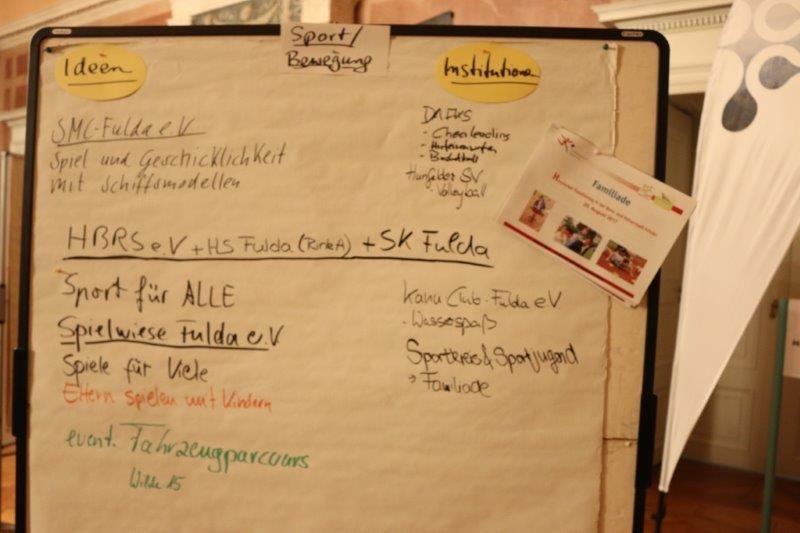 Sport/
Bewegung
Ideen
SMC-Fulda e.V
Spiel und Geschicklichkeit
mit Schiffsmodellen
HBRS e.V + HS Fulda (RinkA) + SK Fulda
Sport für ALLE
Spielwiese Fulda e.V
Spiele für Viele
Eltern spielen mit Kindern
event. Fahrzeugparcours
Wilde 15
Institutionen
- Cheerleading
- Basketball
Hünfelder SV
- Volleyball
Kanu Club-Fulda eV
- Wasserspaß
Sportkreis & Sportjugend
Familiade
Familiade
20. August 2017